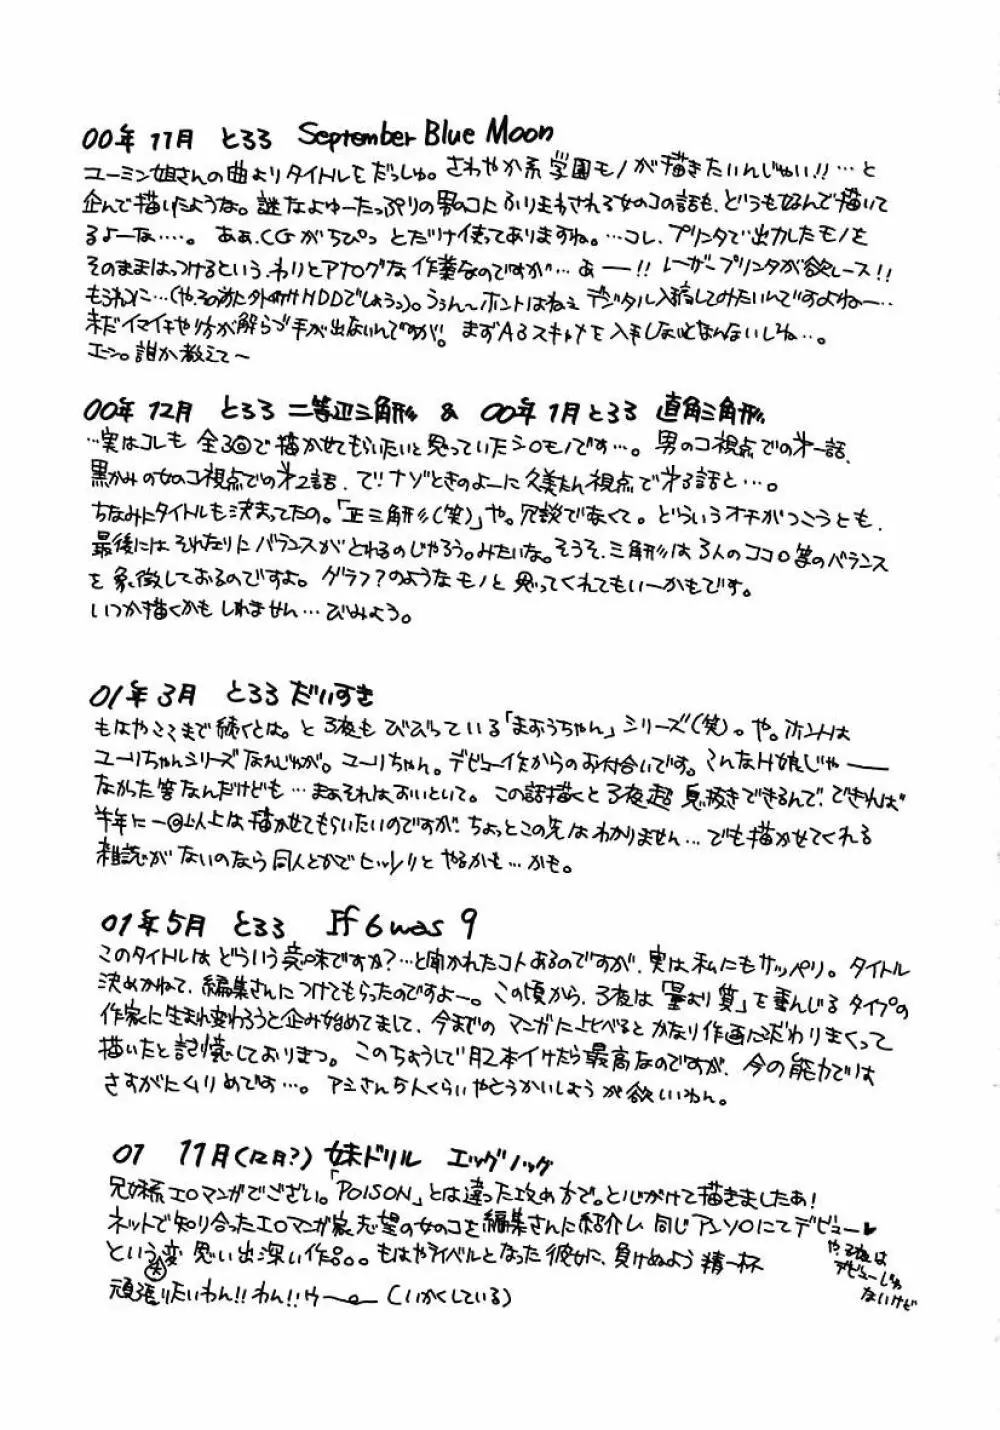 00年11月 とろろ September Blue Moon
ユーミン姐さんの曲よりタイトルをだっしゅ。さわやか系学園モノが描きたいんじゃい!!…と
企んで描いたような。謎なよゆーたっぷりの男のコにふりまわされる女のコの話も、どうもなんで描いて
るよーな…。あぁ、CGがちぴっとだけ使ってありますね。…コレ、プリンタで出力したモノを
そのままはっつけるという、わりとアナログな作業なのですが…あ——!! レーザープリンタが欲レース!!
もうれつに…(や、その前に外付けHDDでしょうっ)。ううん〜ホントはねぇデジタル入稿してみたいんですよねー…
未だイマイチやり方が解らづ手が出ないんですが。まずA3スキャナを入手しないとなんないしね…。
エーン。誰か教えて〜
00年12月 とろろ 二等辺三角形 & 00年1月とろろ 直角三角形
…実はコレも全3回で描かせてもらいたいと思っていたシロモノです…。男のコ視点での才一話、
黒かみの女のコ視点での才2話、で!ナゾときのよーに久美たん視点で才3話と…。
ちなみにタイトルも決まってたの。「正三角形(笑)」や。冗談でなくて。どういうオチがつこうとも、
最後にはそれなりにバランスがとれるのじゃろう。みたいな。そうそ、三角形は3人のココロ等のバランス
を象徴しておるのですよ。グラフ?のようなモノと思ってくれてもいーかもです。
いつか描くかもしれません…びみょう。
01年3月 とろろ だいすき
もはやここまで続くとは。と3夜もびびっている「まおうちゃん」シリーズ(笑)。や。ホントは
ユーリちゃんシリーズなんじゃが。ユーリちゃん。デビュー作からのお付合いです。こんなH娘じゃー
なかった筈なんだけども…まぁそれはおいといて。この話描くと3夜超息抜きできるんで、できれば
半年に一回以上は描かせてもらいたいのですが、ちょっとこの先はわかりません…でも描かせてくれる
雑誌がないのなら同人とかでヒッソリとやるかも…かも。
01年5月 とろろ If 6 was 9
このタイトルはどういう意味ですか?…と聞かれたコトあるのですが、実は私にもサッパリ。タイトル
決めかねて、編集さんにつけてもらったのですよー。この頃から、3夜は「量より質」を重んじるタイプの
作家に生まれ変わろうと企み始めてまして、今までのマンガに比べるとかなり作画にこだわりまくって
描いたと記憶しておりまつ。このちょうしで月2本イケたら最高なのですが、今の能力では
さすがにムリめです…。アシさん5人くらいやとうかいしょうが欲しいわん。
01 11月(12月?) 妹ドリル エッグノッグ
兄妹系エロマンガでござい。「POISON」とは違った攻め方で。と心がけて描きましたぁ!
ネットで知り合ったエロマンガ家志望の女のコを編集さんに紹介し、同じアンソロにてデビュー♥
という変(笑)思い出深い作品。もはやライバルとなった彼女に、負けぬよう精一杯
頑張りたいわん!!わん!!ウー(いかくしている)
や、3夜は
デビューじゃ
ないけど